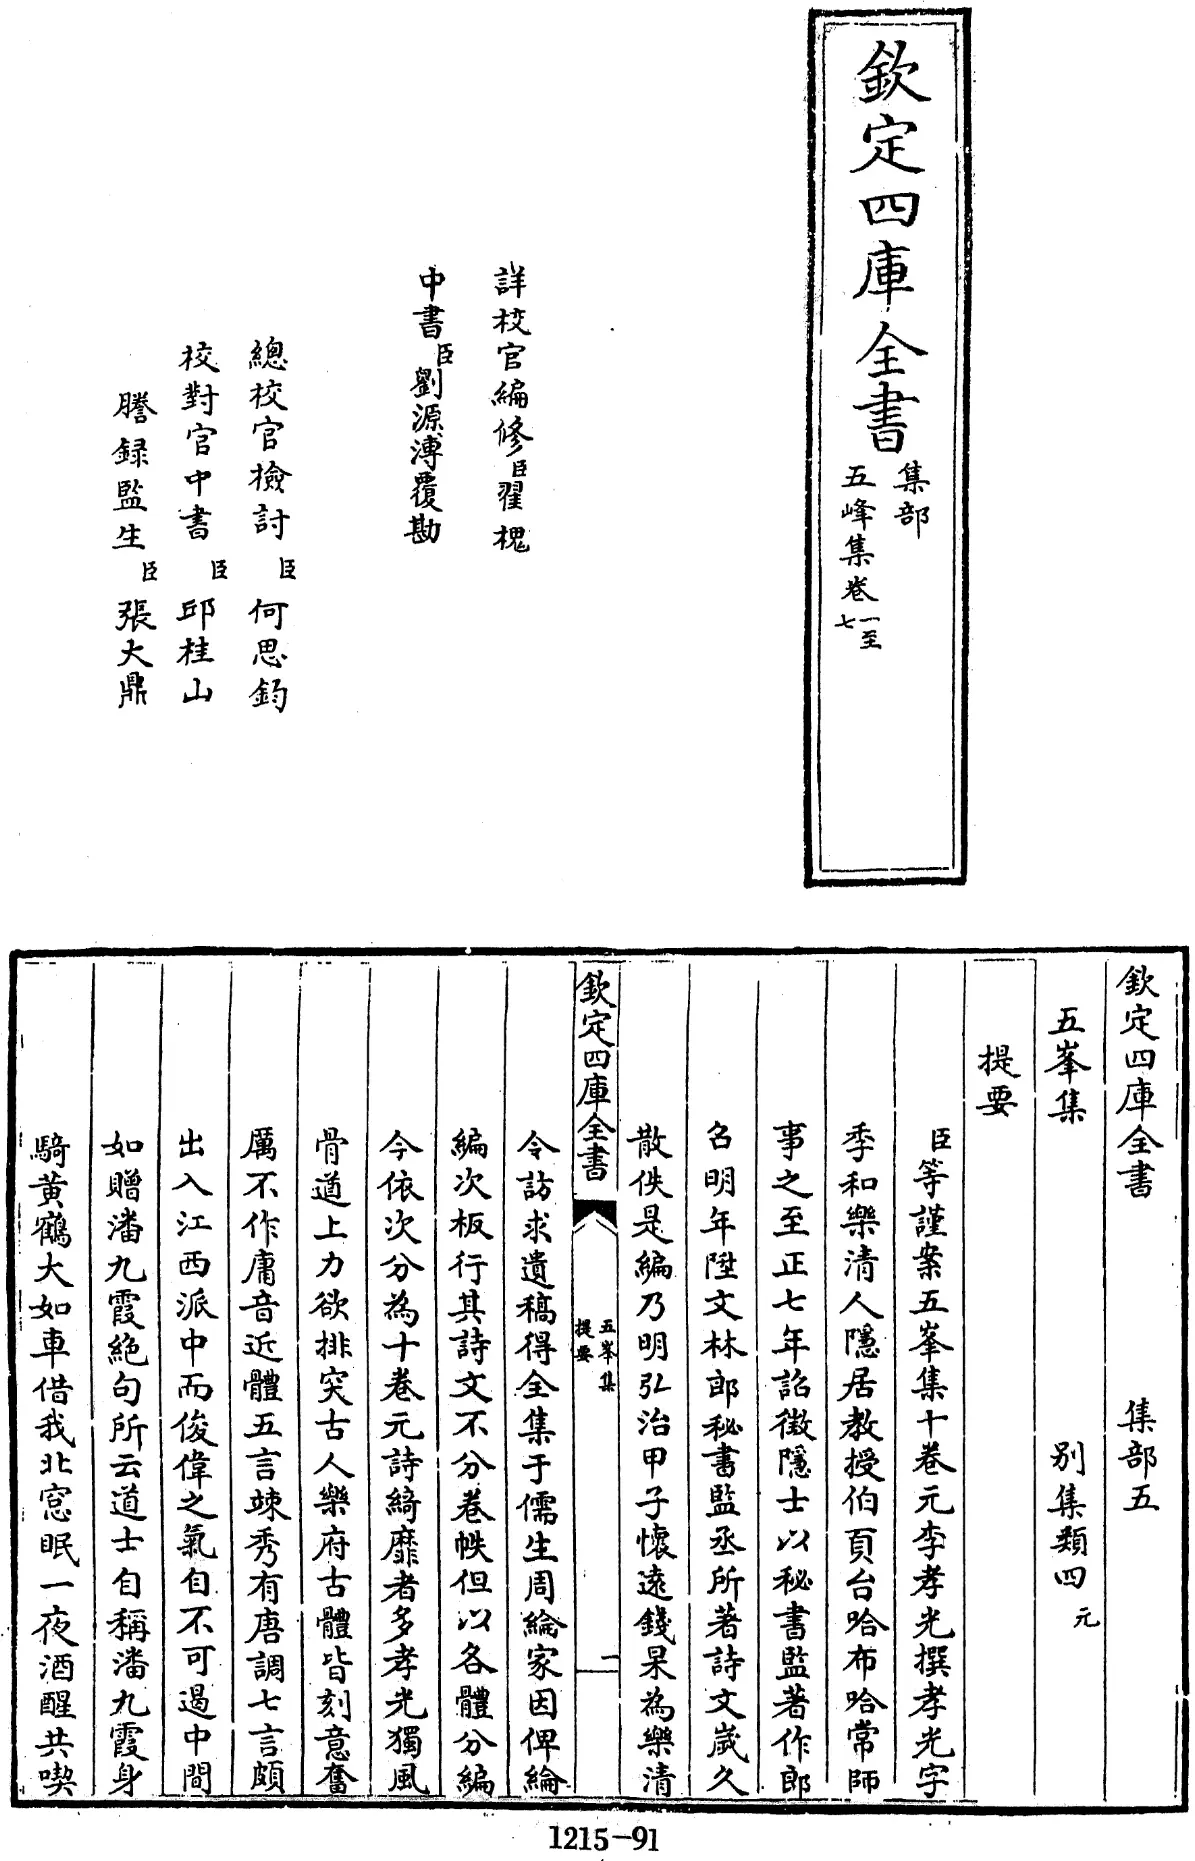 欽定四庫全書
集部
五峰集卷一至七
詳校官編修臣翟槐
中書臣劉源溥覆勘
總校官檢討臣何思鈞
校對官中書臣邱桂山
謄録監生臣張大鼎
欽定四庫全書 集部五
五峯集 別集類四元
提要
臣等謹案五峯集十卷元李孝光撰孝光字
季和樂清人隱居教授伯頁台哈布哈常師
事之至正七年詔徵隱士以秘書監著作郎
召明年陞文林郎秘書監丞所著詩文嵗久
散佚是編乃明弘治甲子懷遠錢杲為樂清
欽定四庫全書
五峯集
提要
一
令訪求遺稿得全集于儒生周綸家因俾綸
編次板行其詩文不分卷帙但以各體分編
今依次分為十卷元詩綺靡者多孝光獨風
骨遒上力欲排突古人樂府古體皆刻意奮
厲不作庸音近體五言竦秀有唐調七言頗
出入江西派中而俊偉之氣自不可遏中間
如贈潘九霞絶句所云道士自稱潘九霞身
騎黄鶴大如車借我北窓眠一夜酒醒共喫
1215-91